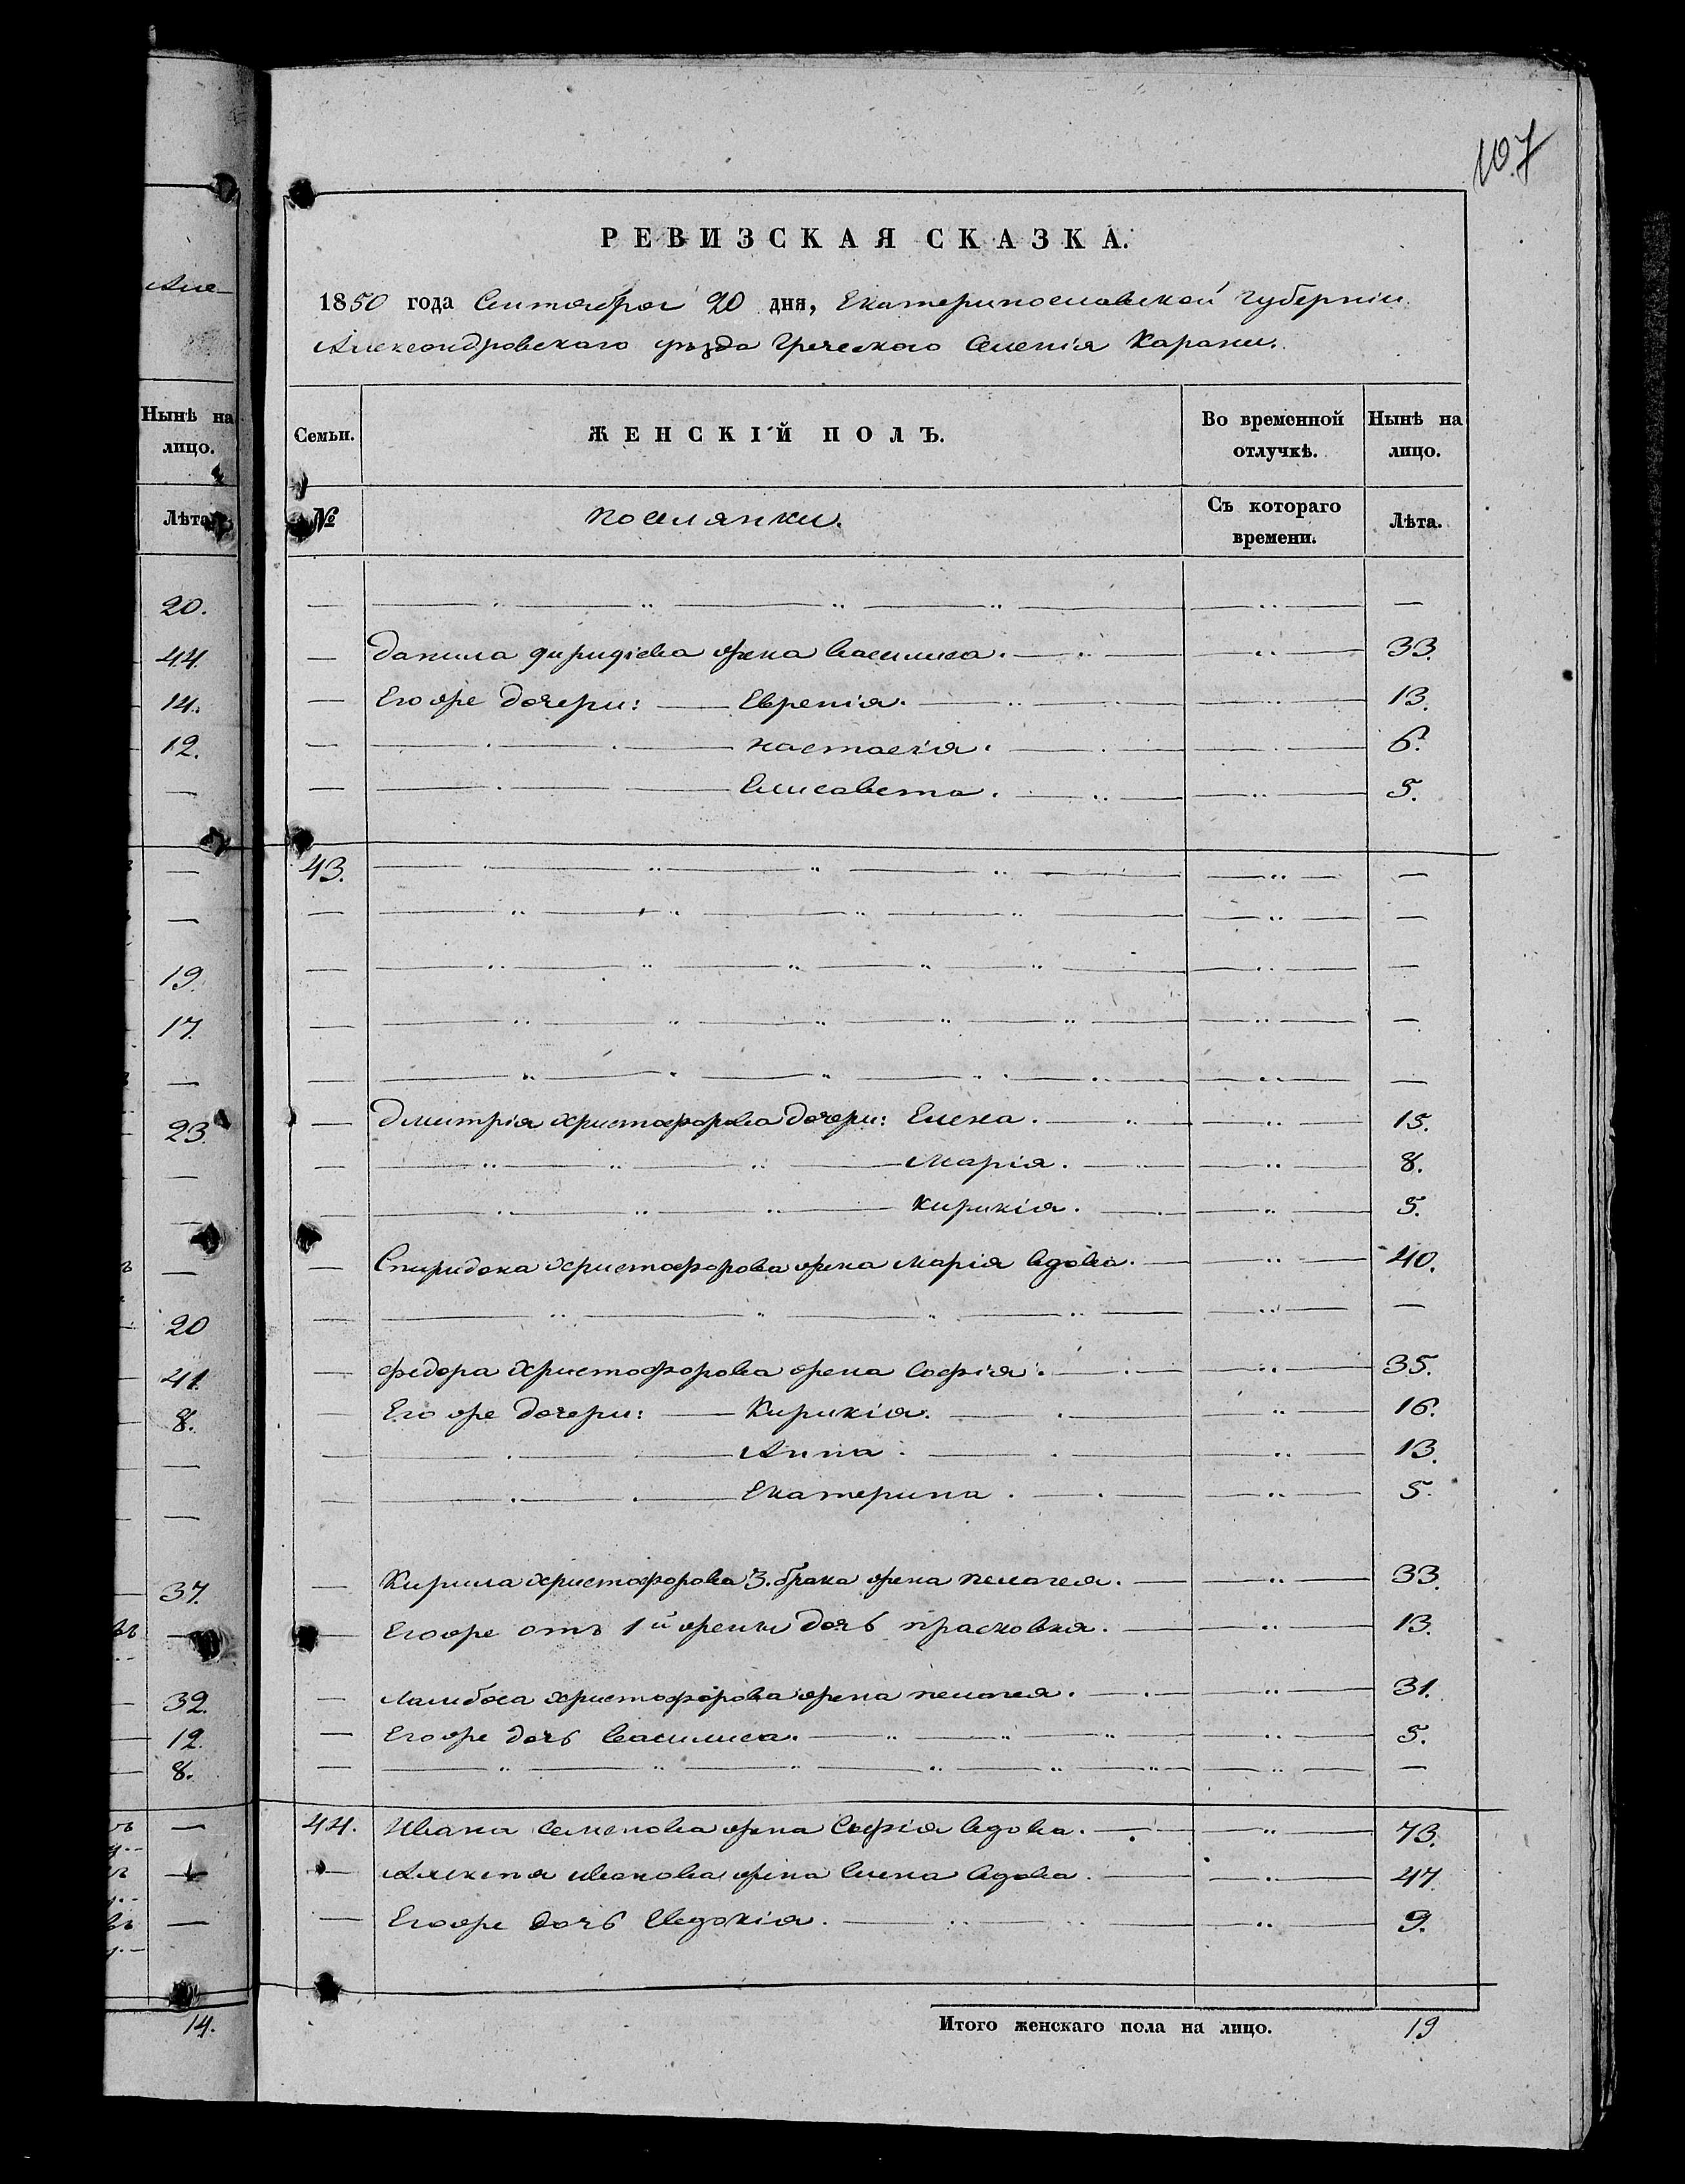 107
Але-
Нынѣ на
лицо.
Лѣта.
20.
44.
14.
12.
—
—
—
19.
17.
—
23.
—
—
—
20
41.
8.
—
—
37.
—
32.
12.
8.
—
—
—
14.
РЕВИЗСКАЯ СКАЗКА.
1850 года Сентября 20 дня, Екатеринославской губерніи
Александровскаго уѣзда Греческаго Селенія Карани.
Семьи. ЖЕНСКІЙ ПОЛЪ. Во временной отлучкѣ. Нынѣ на лицо.
№ поселянки. Съ котораго времени. Лѣта.
— — — —
— Данила жена Василиса. — 33.
— Его же дочери: Евгенія. — 13.
— — Настасія. — 6.
— — Елисавета. — 5.
43. — — —
— — — —
— — — —
— — — —
— — — —
— Дмитрія Христофорова дочери: Елена. — 15.
— — Марія. — 8.
— — Кирикія. — 5.
— Спиридона Христофорова жена Марія вдова. — 40.
— — — —
— Федора Христофорова жена Софія. — 35.
— Его же дочери: Кирикія. — 16.
— — Анна. — 13.
— — Екатерина. — 5.
— Кирила Христофорова 3. брака жена Пелагея. — 33.
— Его же отъ 1й жены дочь Прасковья. — 13.
— Ламбоса Христофорова жена Пелагея. — 31.
— Его же дочь Василиса. — 5.
— — — —
44. Ивана Семенова жена Софія вдова. — 73.
— Иванова жена Елена вдова. — 47.
— Его же дочь Евдокія. — 9.
Итого женскаго пола на лицо. 19